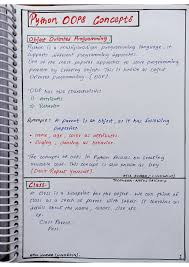 Python OOPs Concepts
Object Oriented Programming
Python is a multiparadigm programming language, it
supports different programming approaches.
One of the most popular approaches to solve programming
problem by creating objects. This is known as object
oriented programming - (OOP).
OOP has two characteristics
1) attributes
2) behavior
Example: A parrot is an object, as it has following
properties
• name, age, color as attributes
• singing, dancing as behavior
The concepts of OOPs in Python focuses on creating
reusable code. This concept is also known as DRY
(Don't Repeat Yourself).
Class -
A class is a blueprint for the object. We can think of
class as a sketch of parrot with labels. It contains all
details about the name, colors, size etc.
class Parrot:
Pass